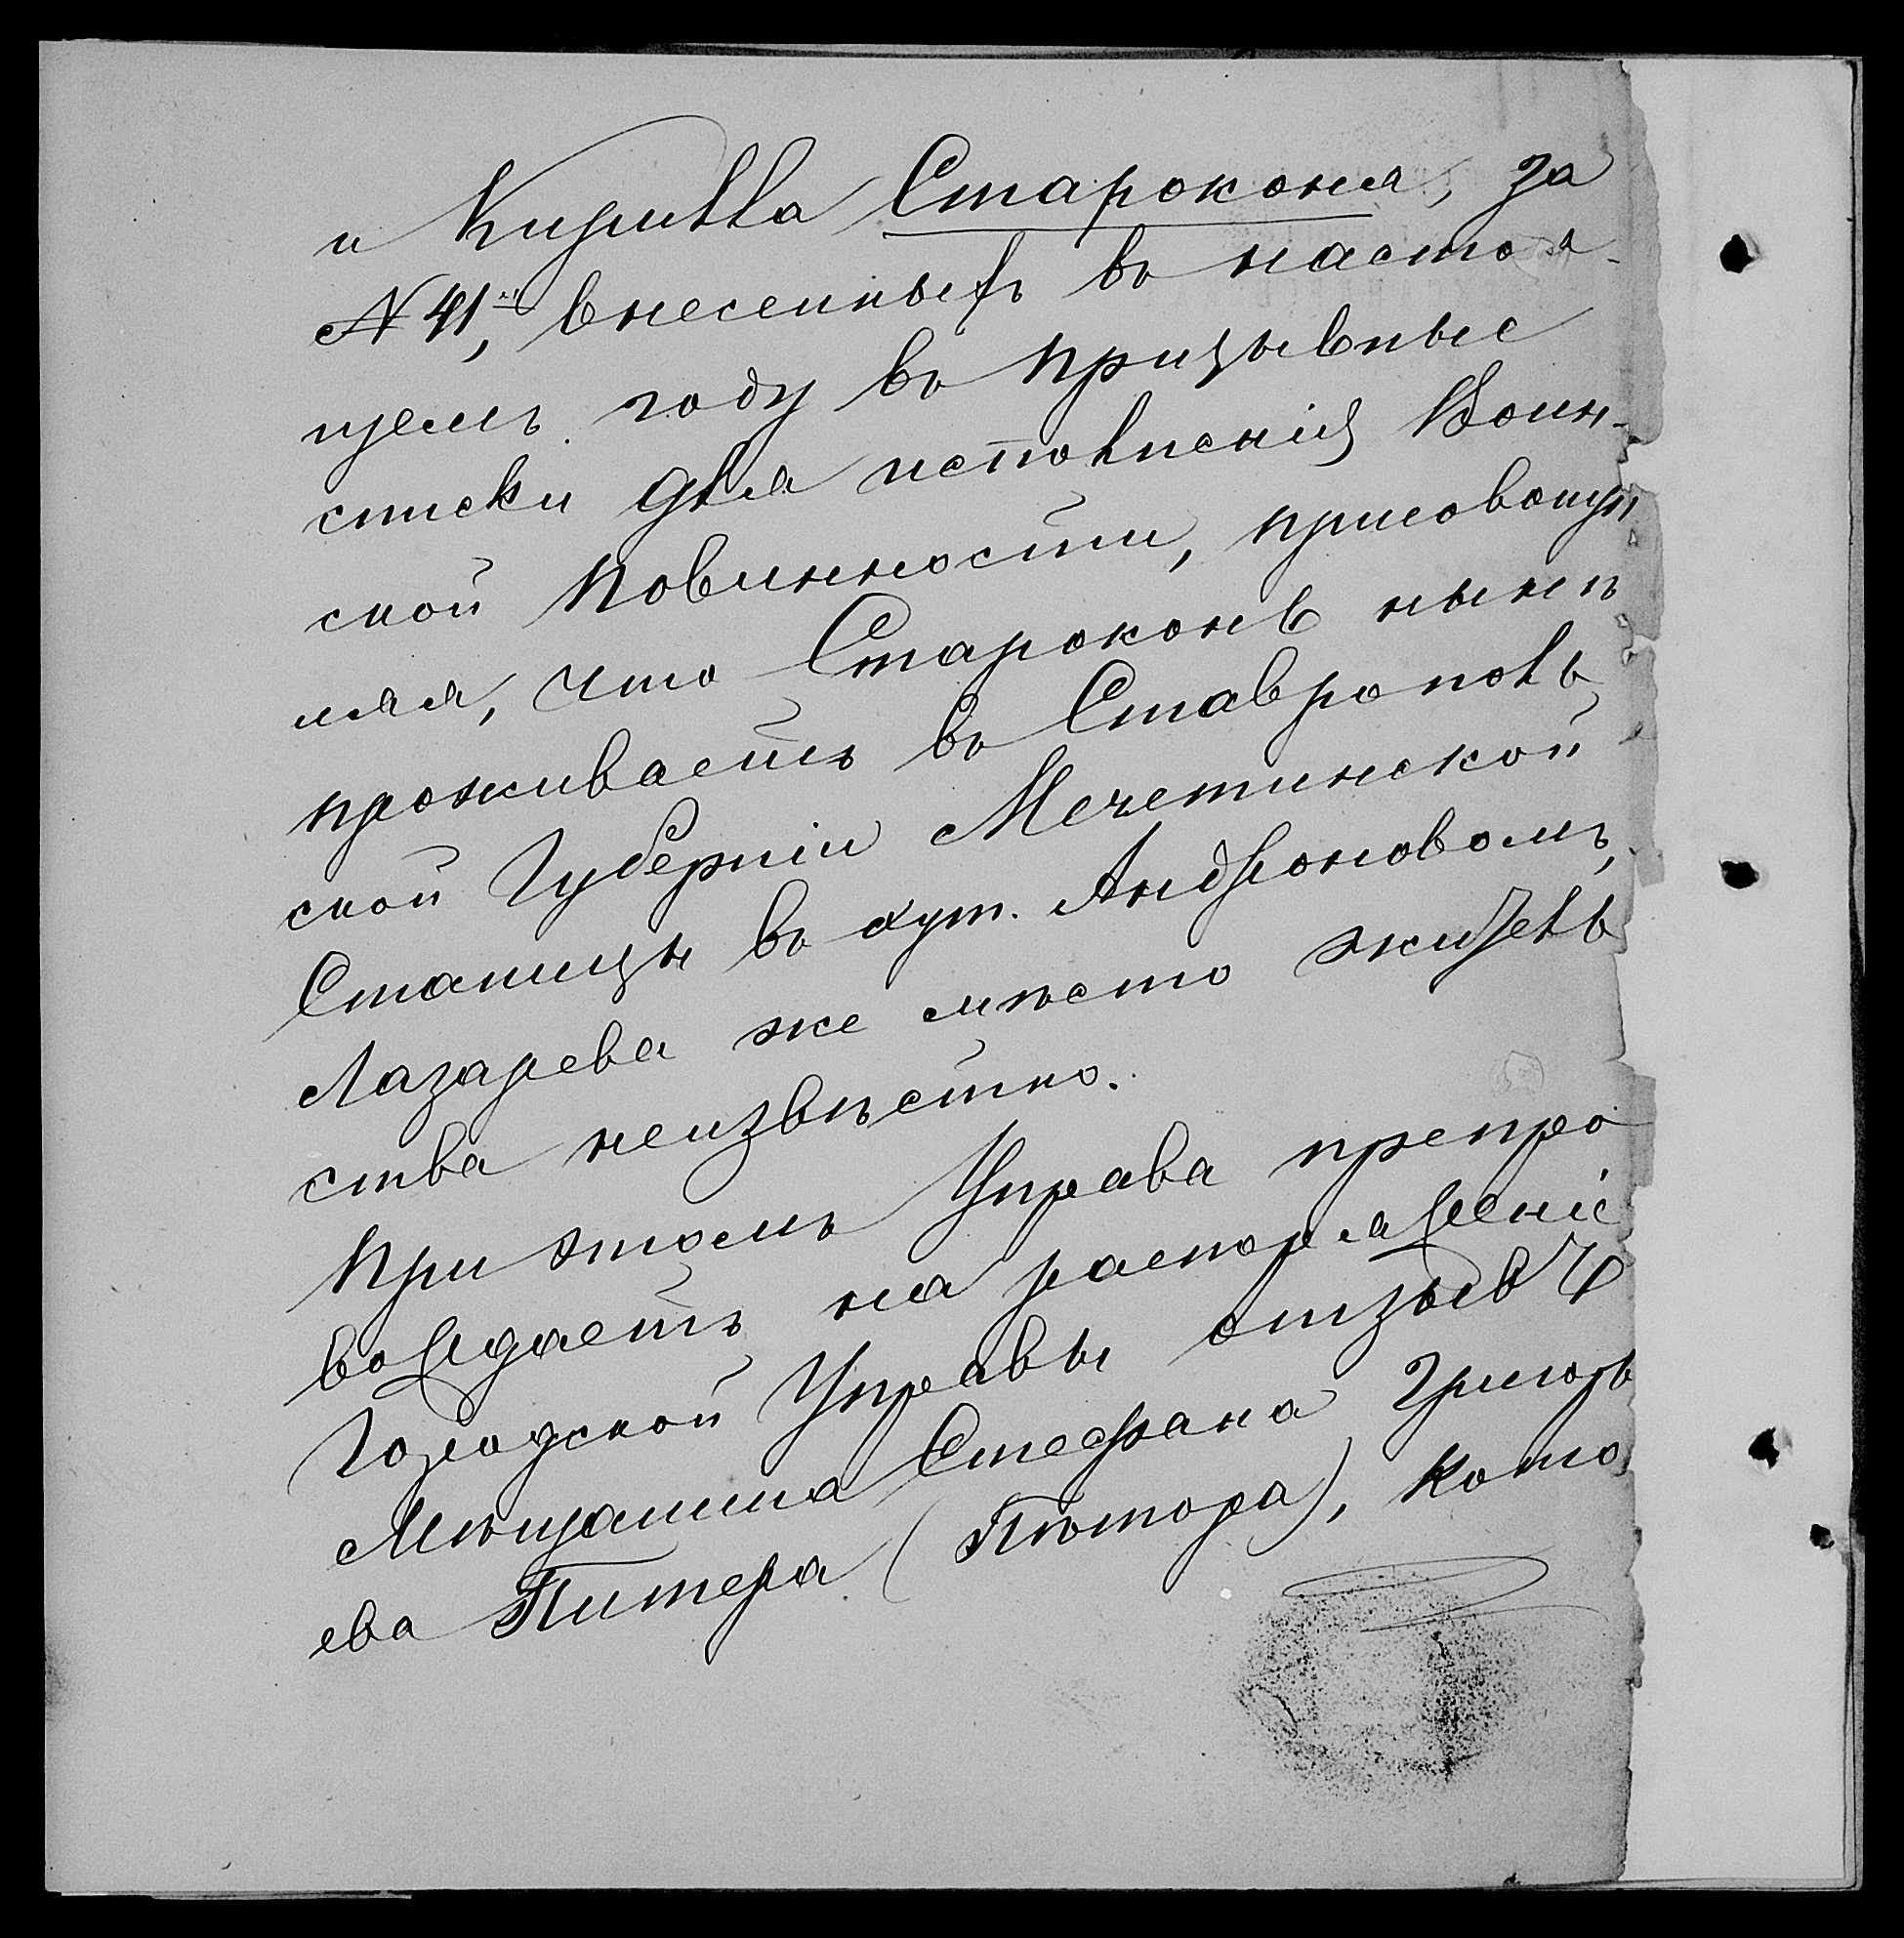 и Кирилла Староконя, за
№ 41м, внесенныхъ въ настоя-
щемъ году въ призывные
списки для исполненія Воин-
ской Повинности, присовокуп
ляя, что Староконь нынѣ
проживаетъ въ Ставрополь
ской Губерніи Мечетинской
Станицы въ хут. Андроновомъ,
Лазарева же мѣсто житель
ства неизвѣстно.
При этомъ Управа препро
вождаетъ на распоряженіе
Городской Управы отзывъ
Мѣщанина Стефана Григорь
ева Питера (Пѣтора), кото